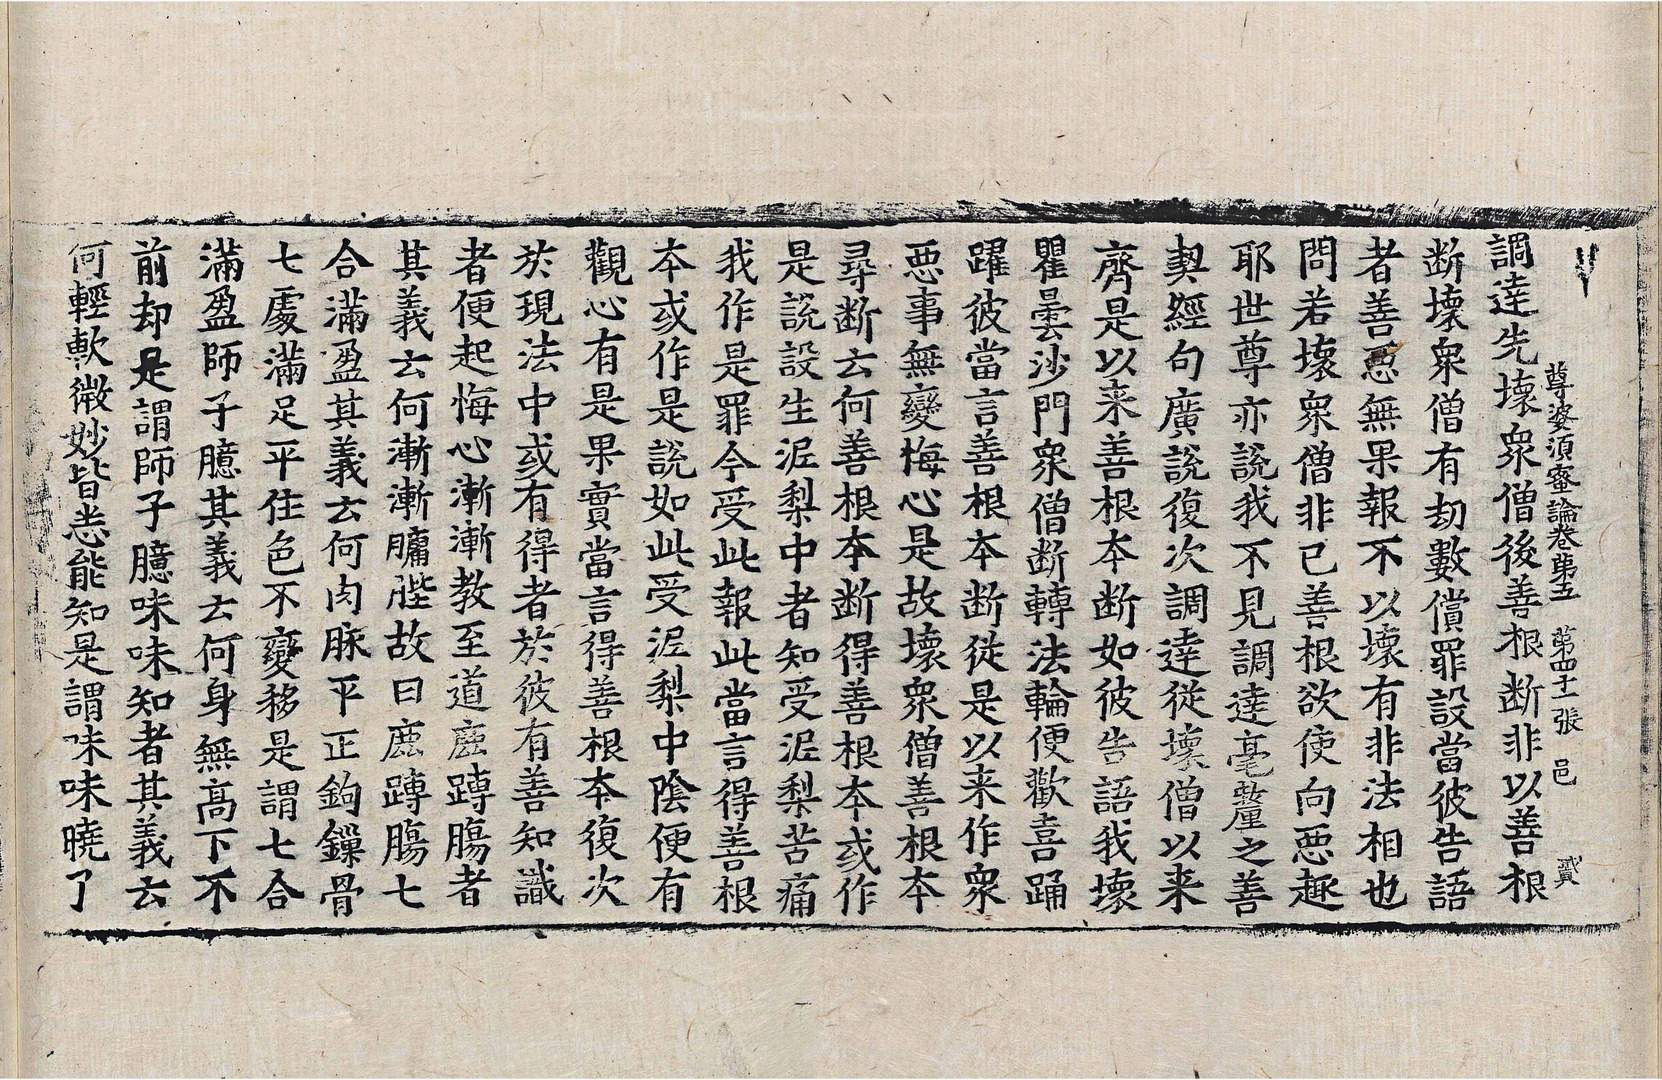 尊婆須蜜論卷第五 第四十一張 邑
調達先壞衆僧後善根斷非以善根
断壞衆僧有劫數償罪設當彼告語
者善惡無果報不以壞有非法相也
問若壞衆僧非已善根欲使向惡趣
耶世尊亦說我不見調達毫釐之善
契經句廣說復次調達從壞僧以来
齊是以来善根本断如彼告語我壞
瞿曇沙門衆僧断轉法輪便歡喜踊
躍彼當言善根本断從是以来作衆
惡事無變悔心是故壞衆僧善根本
尋断云何善根本断得善根本或作
是說設生泥梨中者知受泥梨苦痛
我作是罪今受此報此當言得善根
本或作是說如此受泥梨中陰便有
觀心有是果實當言得善根本復次
於現法中或有得者於彼有善知識
者便起悔心漸漸教至道鹿䏝腸者
其義云何漸漸𦟛䏶故曰鹿䏝腸七
合滿盈其義云何肉脉平正鉤鏁骨
七處滿足平住色不變移是謂七合
滿盈師子臆其義云何身無高下不
前却是謂師子臆味味知者其義云
何輕軟微妙皆悉能知是謂味味曉了